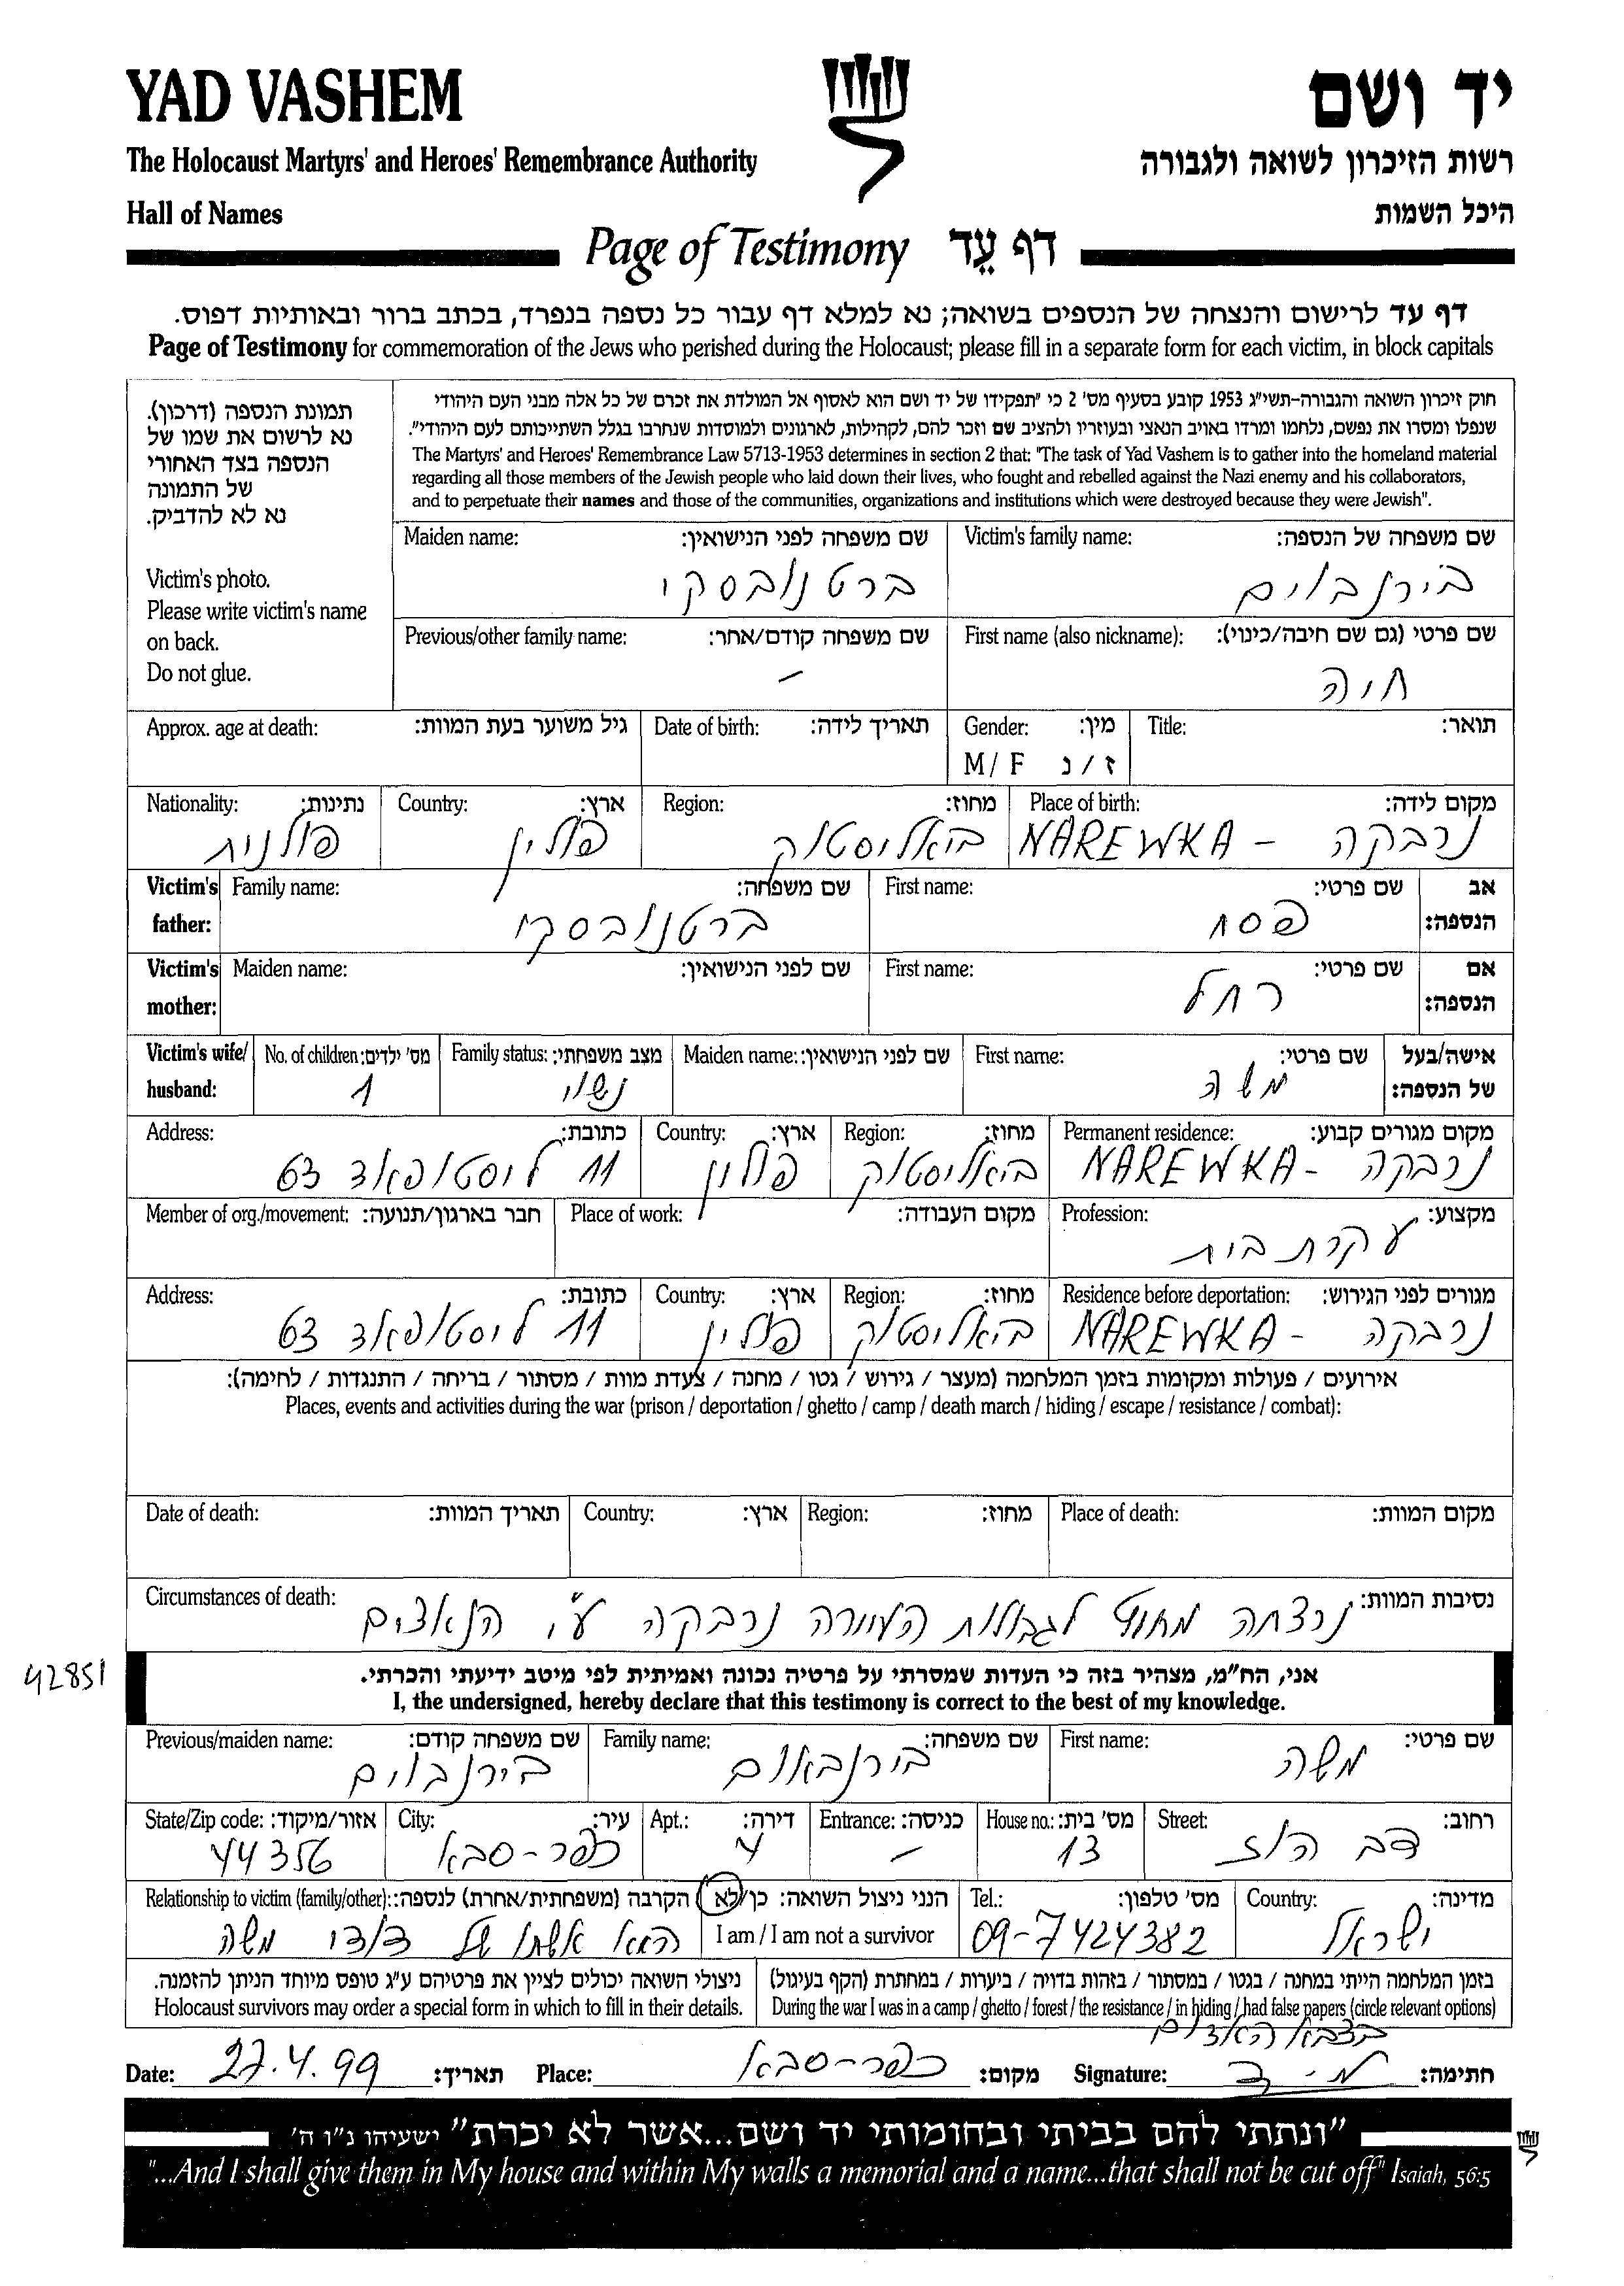 YAD VASHEM
יד ושם
The Holocaust Martyrs' and Heroes' Remembrance Authority
רשות הזיכרון לשואה ולגבורה
Hall of Names
היכל השמות
Page of Testimony דף עֵד
דף עד לרישום והנצחה של הנספים בשואה; נא למלא דף עבור כל נספה בנפרד, בכתב ברור ובאותיות דפוס.
Page of Testimony for commemoration of the Jews who perished during the Holocaust; please fill in a separate form for each victim, in block capitals
תמונת הנספה (דרכון).
נא לרשום את שמו של
הנספה בצד האחורי
של התמונה
נא לא להדביק.
Victim's photo.
Please write victim's name
on back.
Do not glue.
חוק זיכרון השואה והגבורה-תשי"ג 1953 קובע בסעיף מס' 2 כי "תפקידו של יד ושם הוא לאסוף אל המולדת את זכרם של כל אלה מבני העם היהודי
שנפלו ומסרו את נפשם, נלחמו ומרדו באויב הנאצי ובעוזריו ולהציב שם וזכר להם, לקהילות, לארגונים ולמוסדות שנחרבו בגלל השתייכותם לעם היהודי".
The Martyrs' and Heroes' Remembrance Law 5713-1953 determines in section 2 that: "The task of Yad Vashem is to gather into the homeland material
regarding all those members of the Jewish people who laid down their lives, who fought and rebelled against the Nazi enemy and his collaborators,
and to perpetuate their names and those of the communities, organizations and institutions which were destroyed because they were Jewish".
Victim's family name: שם משפחה של הנספה:
בירנבוים
Maiden name: שם משפחה לפני הנישואין:
ברטנובסקי
First name (also nickname): שם פרטי (גם שם חיבה/כינוי):
חיה
Previous/other family name: שם משפחה קודם/אחר:
–
Title: תואר:
Gender: מין:
M/ F ז / נ
Date of birth: תאריך לידה:
Approx. age at death: גיל משוער בעת המוות:
Place of birth: מקום לידה:
נרבקה - NAREWKA
Region: מחוז:
ביאליסטוק
Country: ארץ:
פולין
Nationality: נתינות:
פולנית
Victim's father: אב הנספה:
First name: שם פרטי:
פסח
Family name: שם משפחה:
ברטנובסקי
Victim's mother: אם הנספה:
First name: שם פרטי:
רחל
Maiden name: שם לפני הנישואין:
Victim's wife/ husband: אישה/בעל של הנספה:
First name: שם פרטי:
משה
Maiden name: שם לפני הנישואין:
Family status: מצב משפחתי:
נשוי
No. of children: מס' ילדים:
1
Permanent residence: מקום מגורים קבוע:
נרבקה - NAREWKA
Region: מחוז:
ביאליסטוק
Country: ארץ:
פולין
Address: כתובת:
11 ליסטופאד 63
Profession: מקצוע:
עקרת בית
Place of work: מקום העבודה:
Member of org./movement: חבר בארגון/תנועה:
Residence before deportation: מגורים לפני הגירוש:
נרבקה - NAREWKA
Region: מחוז:
ביאליסטוק
Country: ארץ:
פולין
Address: כתובת:
11 ליסטופאד 63
אירועים / פעולות ומקומות בזמן המלחמה (מעצר / גירוש / גטו / מחנה / צעדת מוות / מסתור / בריחה / התנגדות / לחימה):
Places, events and activities during the war (prison / deportation / ghetto / camp / death march / hiding / escape / resistance / combat):
Place of death: מקום המוות:
Region: מחוז:
Country: ארץ:
Date of death: תאריך המוות:
Circumstances of death: נסיבות המוות:
נרצחה מחוץ לגבולות העיירה נרבקה ע"י הנאצים
42851
אני, הח"מ, מצהיר בזה כי העדות שמסרתי על פרטיה נכונה ואמיתית לפי מיטב ידיעתי והכרתי.
I, the undersigned, hereby declare that this testimony is correct to the best of my knowledge.
First name: שם פרטי:
משה
Family name: שם משפחה:
בירנבאום
Previous/maiden name: שם משפחה קודם:
בירנבוים
Street: רחוב:
דב הוז
House no.: מס' בית:
13
Entrance: כניסה:
–
Apt.: דירה:
4
City: עיר:
כפר-סבא
State/Zip code: אזור/מיקוד:
44356
Country: מדינה:
ישראל
Tel.: מס' טלפון:
09-7424382
הנני ניצול השואה: כן/לא
I am / I am not a survivor
Relationship to victim (family/other): הקרבה (משפחתית/אחרת) לנספה:
אשתו של דודי משה
בזמן המלחמה הייתי במחנה / בגטו / במסתור / בזהות בדויה / ביערות / במחתרת (הקף בעיגול)
During the war I was in a camp / ghetto / forest / the resistance / in hiding / had false papers (circle relevant options)
ניצולי השואה יכולים לציין את פרטיהם ע"ג טופס מיוחד הניתן להזמנה.
Holocaust survivors may order a special form in which to fill in their details.
Date: 27.4.99 תאריך:
Place: כפר-סבא מקום:
Signature: חתימה:
"ונתתי להם בביתי ובחומותי יד ושם...אשר לא יכרת" ישעיהו נ"ו ה'
"...And I shall give them in My house and within My walls a memorial and a name...that shall not be cut off" Isaiah, 56:5